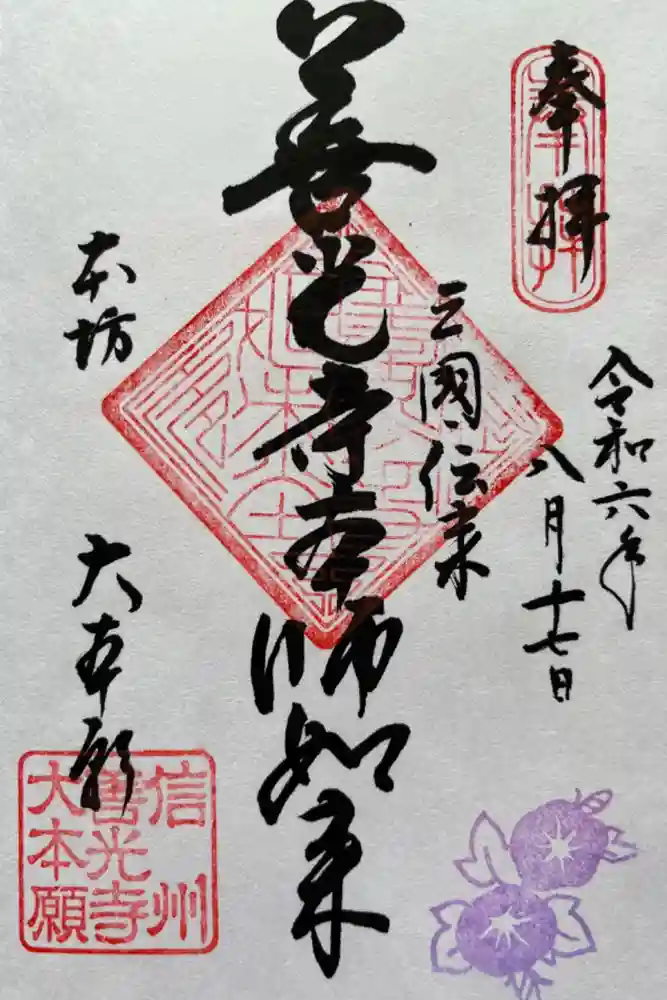 奉拝
令和六年
八月十七日
三國伝来
善光寺本師如来
本坊
大本願
奉拝
信州
善光寺
大本願